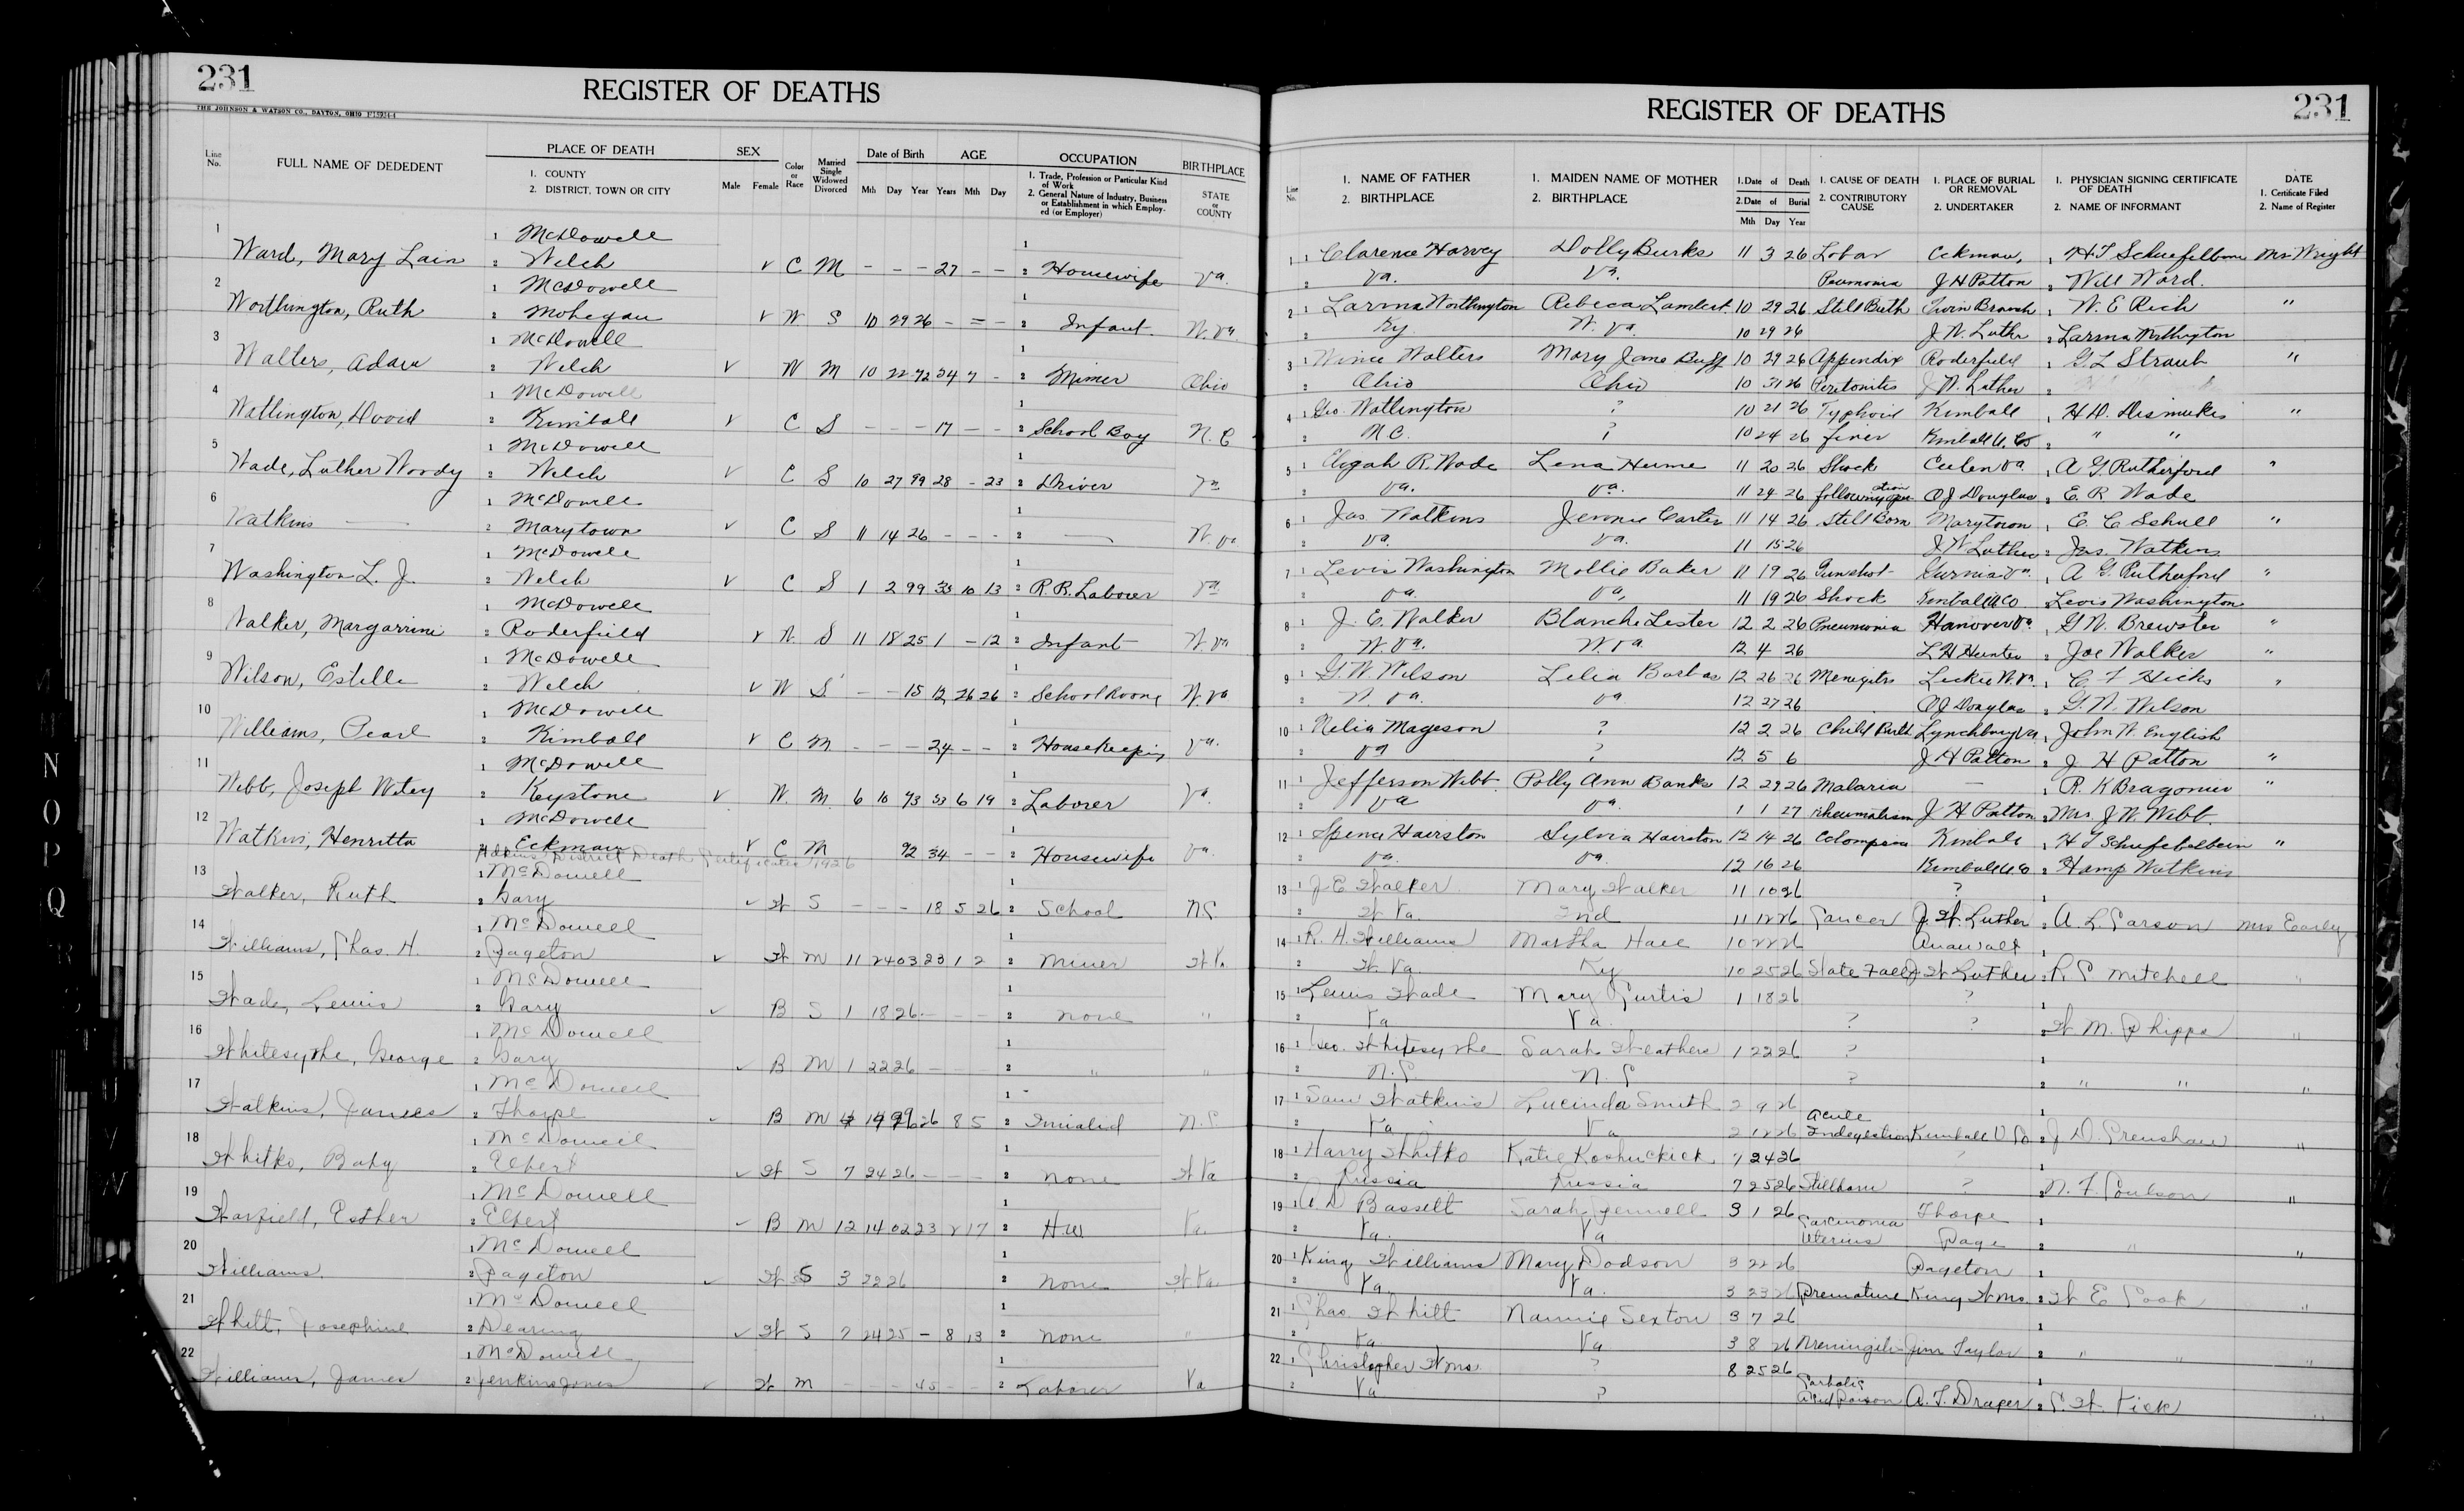 231
REGISTER OF DEATHS
THE JOHNSON & WATSON CO., DAYTON, OHIO
Line No. FULL NAME OF DEDEDENT PLACE OF DEATH 1. COUNTY 2. DISTRICT, TOWN OR CITY SEX Male Female Color or Race Married Single Widowed Divorced Date of Birth Mth Day Year AGE Years Mth Day OCCUPATION 1. Trade, Profession or Particular Kind of Work 2. General Nature of Industry, Business or Establishment in which Employed (or Employer) BIRTHPLACE STATE or COUNTY
1 McDowell
Ward, Mary Lain 2 Welch ✓ C M - - - 27 - - 2 Housewife Va.
2 1 McDowell
Worthington, Ruth 2 Mohegan ✓ W S 10 29 26 - = - 2 Infant W. Va.
3 1 McDowell
Walters, Adam 2 Welch ✓ W M 10 22 92 34 7 - 2 Mimer Ohio
4 1 McDowell
Watlington, 2 Kimball ✓ C S - - - 17 - - 2 School Boy N. C
5 1 McDowell
Wade, Luther Woody 2 Welch ✓ C S 10 27 99 28 - 23 2 Driver Va
6 1 McDowell
Watkins 2 Marytown ✓ C S 11 14 26 - - - 2 W. Va
7 1 McDowell
Washington L. J. 2 Welch ✓ C S 1 2 99 33 10 13 2 R. R. Laborer Va
8 1 McDowell
Walker, 2 Roderfield ✓ W. S 11 18 25 1 - 12 2 Infant W. Va
9 1 McDowell
Wilson, Estelle 2 Welch ✓ W S - - 15 12 26 26 2 W. Va
10 1 McDowell
Williams, Pearl 2 Kimball ✓ C M - - - 24 - - 2 Housekeeping Va.
11 1 McDowell
Webb, Joseph Witey 2 Keystone ✓ W. M. 6 10 73 53 6 19 2 Laborer Va.
12 1 McDowell
Watkins, Henritta 2 Eckman ✓ C M 92 34 - - 2 Housewife Va.
Adkins District Death Certificates 1926
13 1 McDowell
Walker, Ruth 2 Gary ✓ W S - - - 18 5 26 2 School N C
14 1 McDowell
Williams, Chas. H. 2 Pageton ✓ W M 11 24 03 23 1 2 2 Miner W Va
15 1 McDowell
Wade, Lewis 2 Gary ✓ B S 1 18 26 - - - 2 none "
16 1 McDowell
Whitesythe, George 2 Gary ✓ B M 1 22 26 - - - 2 " "
17 1 McDowell
Watkins, James 2 Thorpe ✓ B M 26 8 5 2 Invalid N. C
18 1 McDowell
Whitko, Baby 2 Elbert ✓ W S 7 24 26 - - - 2 none W Va
19 1 McDowell
Warfield, Esther 2 Elbert ✓ B M 12 14 02 23 2 17 2 H.W. Va.
20 1 McDowell
Williams. 2 Pageton ✓ W S 3 22 26 2 none W Va.
21 1 McDowell
Whitt, Josephine 2 Dearing ✓ W S 7 24 25 - 8 13 2 none "
22 1 McDowell
Williams, James 2 Jenkinsjones ✓ W M - - - 45 - - 2 Laborer Va
231
REGISTER OF DEATHS
Line No. 1. NAME OF FATHER 2. BIRTHPLACE 1. MAIDEN NAME OF MOTHER 2. BIRTHPLACE 1. Date of Death 2. Date of Burial Mth Day Year 1. CAUSE OF DEATH 2. CONTRIBUTORY CAUSE 1. PLACE OF BURIAL OR REMOVAL 2. UNDERTAKER 1. PHYSICIAN SIGNING CERTIFICATE OF DEATH 2. NAME OF INFORMANT DATE 1. Certificate Filed 2. Name of Register
1 1 Clarence Harvey Dolly Burks 11 3 26 Lobar Eckman, 1 Mrs Wright
2 Va. Va. Pnumonia J H Patton 2 Will Ward.
2 1 Larma Worthington Rebeca Lambert 10 29 26 Still Birth Twin Branch 1 W. E Rich "
2 Ky W. Va. 10 29 26 J W. Luther 2 Larma Worthington
3 1 Wince Walters Mary Jane Buff 10 29 26 Appendix Roderfield 1 G L Straub "
2 Ohio Ohio 10 31 26 Peritonitis J W. Luther 2
4 1 Geo. Watlington ? 10 21 26 Typhoid Kimball 1 H D. Dismukes "
2 N C. ? 10 24 26 fever Kimball U. Co 2 " "
5 1 Elijah R. Wade Lena Hume 11 20 26 Shock Va. 1 A G. Rutherford "
2 Va. Va. 11 24 26 following operation O J Douglas 2 E. R Wade
6 1 Jas Watkins Jennie Carter 11 14 26 Still Born Marytown 1 E. C. Schull "
2 Va. Va. 11 15 26 J W Luther 2 Jas. Watkins
7 1 Lewis Washington Mollie Baker 11 19 26 Gunshot Va. 1 A G. Rutherford "
2 Va. Va, 11 19 26 Shock Kimball U Co 2 Lewis Washington
8 1 J. E. Walker Blanche Lester 12 2 26 Pneumonia Hanover Va 1 G W. Brewster "
2 W. Va. W. Va. 12 4 26 L H Hunter 2 Joe Walker "
9 1 G. W. Wilson Lelia 12 26 26 Menigitis Leckie W. Va. 1 C. F Hicks "
2 W. Va. Va 12 27 26 O J Douglas 2 G. W. Wilson
10 1 Nelia Mageson ? 12 2 26 Child Birth Lynchburg Va 1 John W. English
2 Va ? 12 5 6 J H Patton 2 J H Patton "
11 1 Jefferson Webb Polly Ann Banks 12 29 26 Malaria - 1 R. K Bragonier "
2 Va Va. 1 1 27 Rheumatism J H Patton 2 Mrs J. W. Webb.
12 1 Spence Hairston Sylvia Hairston 12 14 26 Kimball 1 "
2 Va. Va. 12 16 26 Kimball U. Co 2 Hamp Watkins
13 1 J. E Walker Mary Walker 11 10 26 ?
2 W Va. Ind 11 12 26 Cancer J. W. Luther 2 A. L Carson Mrs Earley
14 1 R. H. Williams Martha Hall 10 22 26 Anawalt 1
2 W. Va. Ky 10 25 26 Slate Fall J W Luther 2 R C Mitchell "
15 1 Lewis Wade Mary Curtis 1 18 26 ? 1
2 Va Va. ? ? 2 W M. Phipps "
16 1 Geo. Whitesythe Sarah Weathers 1 22 26 ? 1
2 N. C. N. C ? 2 " " "
17 1 Sam Watkins Lucinda Smith 2 9 26 acute 1
2 Va Va 2 12 26 Indegestion Kimball U Co 2 J D. Crenshaw "
18 1 Harry Whitko Katie Koshuckick 7 24 26 ? 1
2 Russia Russia 7 25 26 Stillborn ? 2 N. F. Coulson "
19 1 A D Bassett Sarah 3 1 26 Carcinoma Thorpe 1
2 Va. Va Uterus Page 2 " "
20 1 King Williams Mary Dodson 3 22 26 Pageton 1
2 Va Va. 3 23 26 Premature King Wms. 2 W E Cook "
21 1 Chas. Whitt Nannie Sexton 3 7 26 1
2 Va Va 3 8 26 Jim Taylor 2 " " "
22 1 Christopher Wms. ? 8 25 26 Carbolic 1
2 Va ? Acid Poison A. T. Draper 2 C. W. Vick "